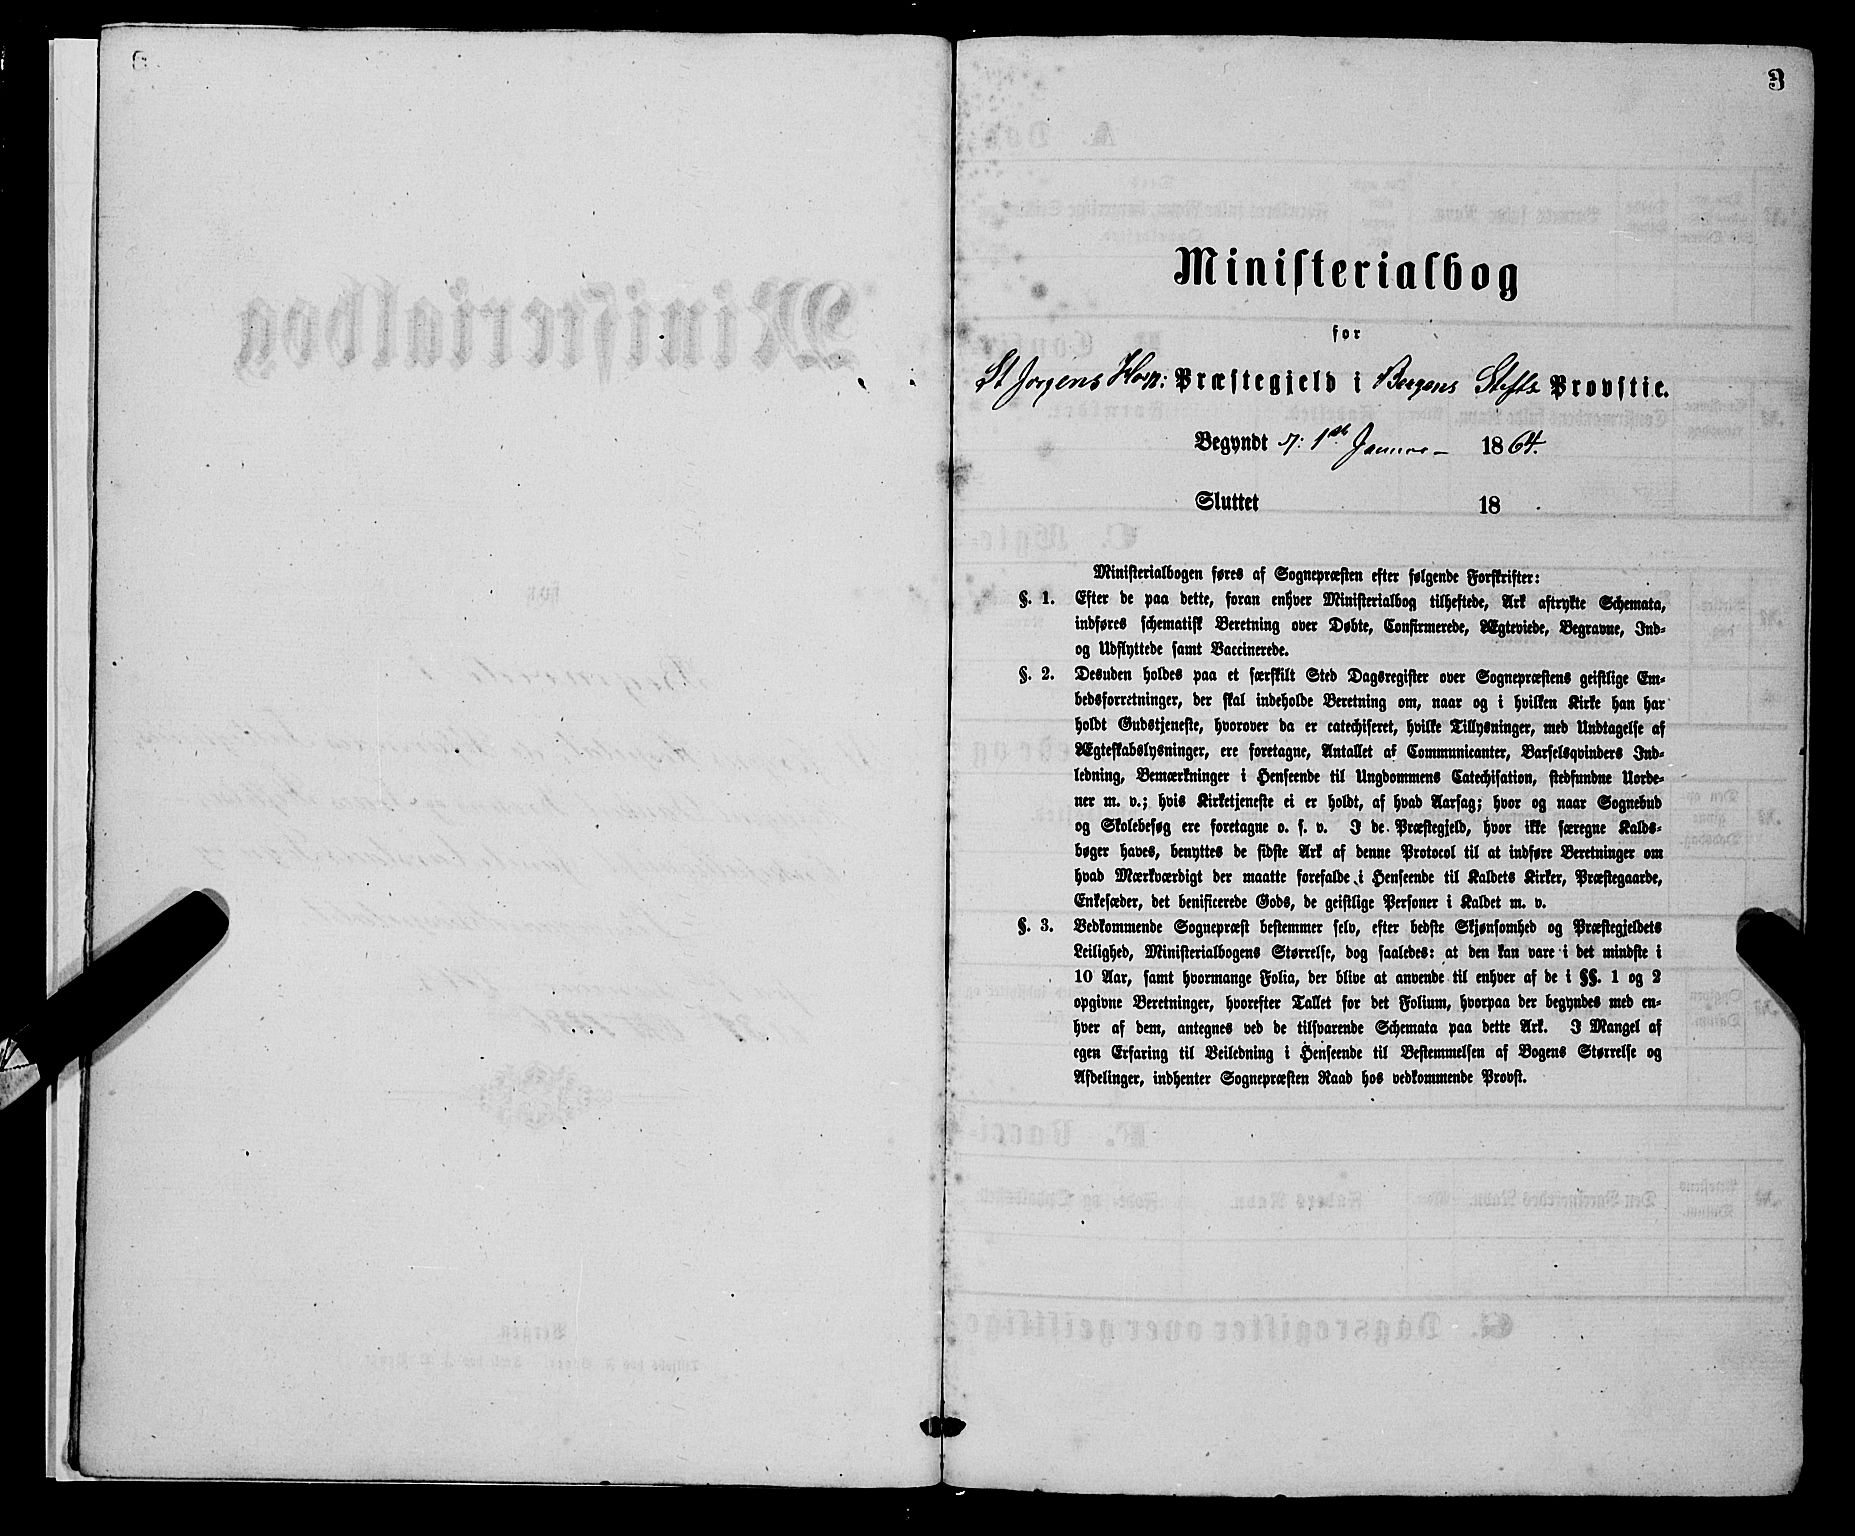 3
Ministerialbog
for
St Jørgens Hosp: Præstegjeld i Bergens Stifts Provstie.
Begyndt d: 1ste Januar 1864.
Sluttet 18
Ministerialbogen føres af Sognepræsten efter følgende Forskrifter:
§. 1. Efter de paa dette, foran enhver Ministerialbog tilheftede, Ark aftrykte Schemata,
indføres schematisk Beretning over Døbte, Confirmerede, Ægteviede, Begravne, Ind-
og Udflyttede samt Vaccinerede.
§. 2. Desuden holdes paa et særskilt Sted Dagsregister over Sognepræstens geistlige Em-
bedsforretninger, der skal indeholde Beretning om, naar og i hvilken Kirke han har
holdt Gudstjeneste, hvorover da er catechiseret, hvilke Tillysninger, med Undtagelse af
Ægteskabslysninger, ere foretagne, Antallet af Communicanter, Barselsqvinders Ind-
ledning, Bemærkninger i Henseende til Ungdommens Catechisation, stedfundne Uorde-
ner m. v.; hvis Kirketjeneste ei er holdt, af hvad Aarsag; hvor og naar Sognebud
og Skolebesøg ere foretagne o. s. v. I de Præstegjeld, hvor ikke særegne Kalds-
bøger haves, benyttes de sidste Ark af denne Protocol til at indføre Beretninger om
hvad Mærkværdigt der maatte forefalde i Henseende til Kaldets Kirker, Præstegaarde,
Enkesæder, det benificerede Gods, de geistlige Personer i Kaldet m. v.
§. 3. Vedkommende Sognepræst bestemmer selv, efter bedste Skjønsomhed og Præstegjeldets
Leilighed, Ministerialbogens Størrelse, dog saaledes: at den kan vare i det mindste i
10 Aar, samt hvormange Folia, der blive at anvende til enhver af de i §§. 1 og 2
opgivne Beretninger, hvorefter Tallet for det Folium, hvorpaa der begyndes med en-
hver af dem, antegnes ved de tilsvarende Schemata paa dette Ark. I Mangel af
egen Erfaring til Veiledning i Henseende til Bestemmelsen af Bogens Størrelse og
Afdelinger, indhenter Sognepræsten Raad hos vedkommende Provst.